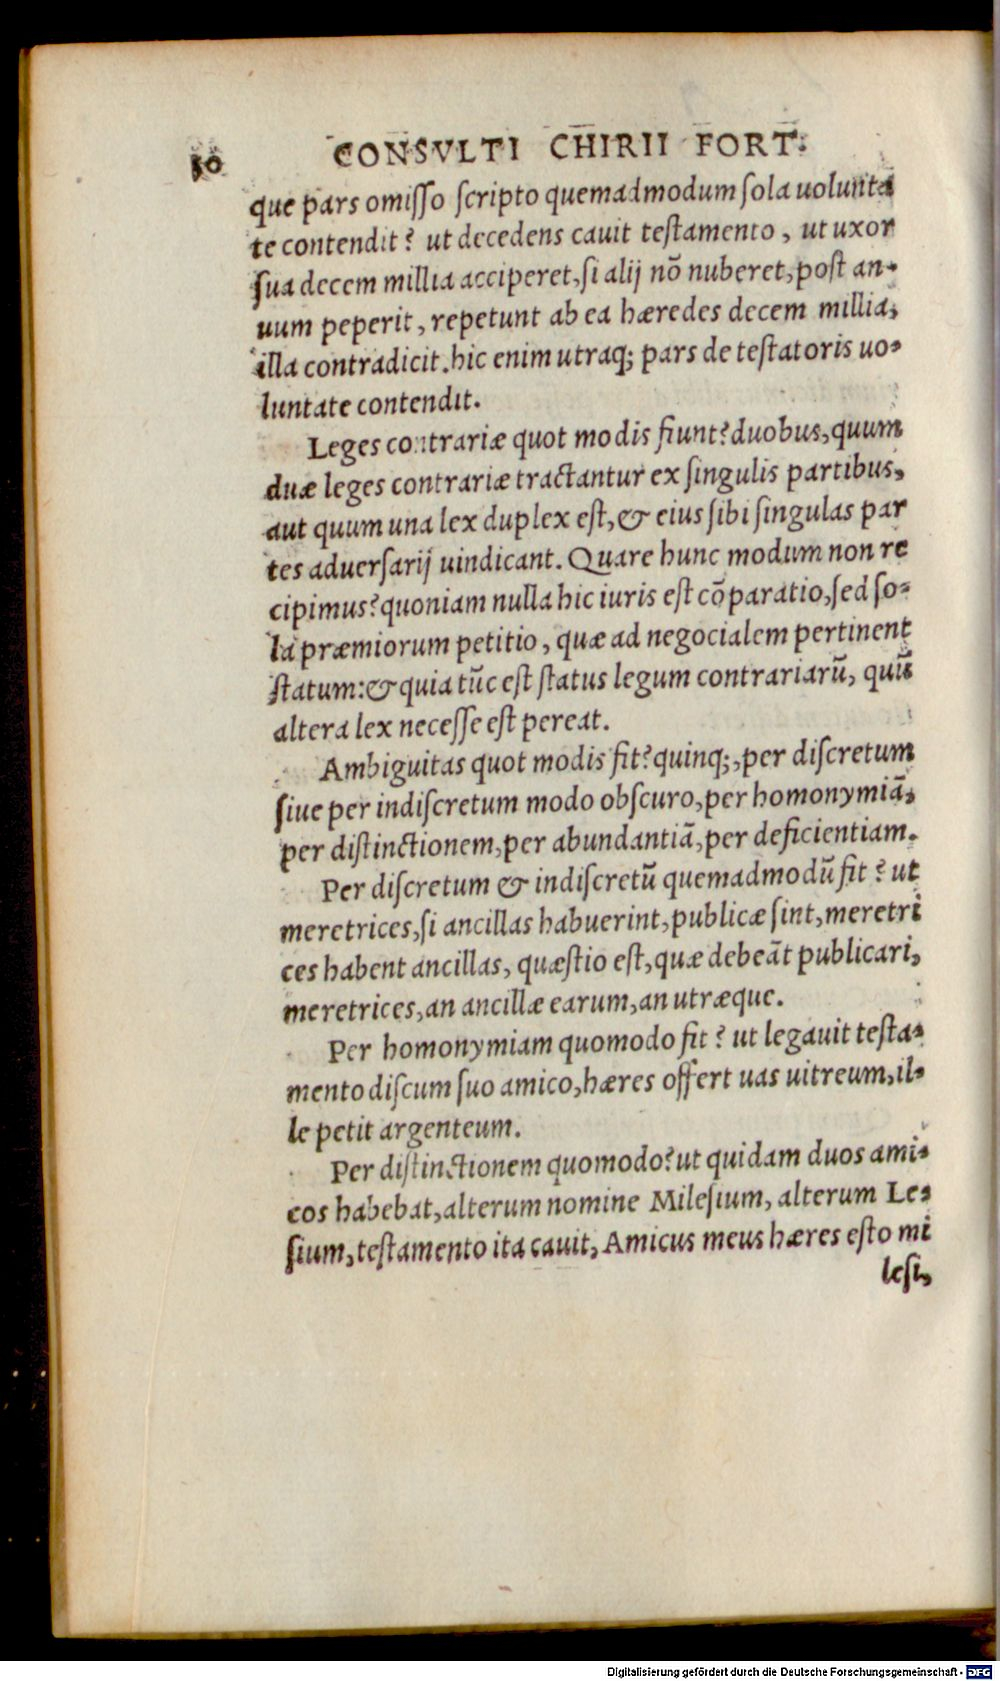 50 CONSVLTI CHIRII FORT.
que pars omisso scripto quemadmodum sola uolunta
te contendit? ut decedens cauit testamento, ut uxor
sua decem millia acciperet, si alij nõ nuberet, post an-
uum peperit, repetunt ab ea hæredes decem millia,
illa contradicit. hic enim utraq; pars de testatoris uo-
luntate contendit.
Leges contrariæ quot modis fiunt? duobus, quum
duæ leges contrariæ tractantur ex singulis partibus,
aut quum una lex duplex est, & eius sibi singulas par
tes aduersarij uindicant. Quare hunc modum non re
cipimus? quoniam nulla hic iuris est cõparatio, sed so-
la præmiorum petitio, quæ ad negocialem pertinent
statum: & quia tũc est status legum contrariarũ, quũ
altera lex necesse est pereat.
Ambiguitas quot modis fit? quinq;, per discretum
siue per indiscretum modo obscuro, per homonymiã,
per distinctionem, per abundantiã, per deficientiam.
Per discretum & indiscretũ quemadmodũ fit? ut
meretrices, si ancillas habuerint, publicæ sint, meretri
ces habent ancillas, quæstio est, quæ debeãt publicari,
meretrices, an ancillæ earum, an utræque.
Per homonymiam quomodo fit? ut legauit testa-
mento discum suo amico, hæres offert uas uitreum, il-
le petit argenteum.
Per distinctionem quomodo? ut quidam duos ami-
cos habebat, alterum nomine Milesium, alterum Le-
sium, testamento ita cauit, Amicus meus hæres esto mi
lesi,
Digitalisierung gefördert durch die Deutsche Forschungsgemeinschaft - DFG